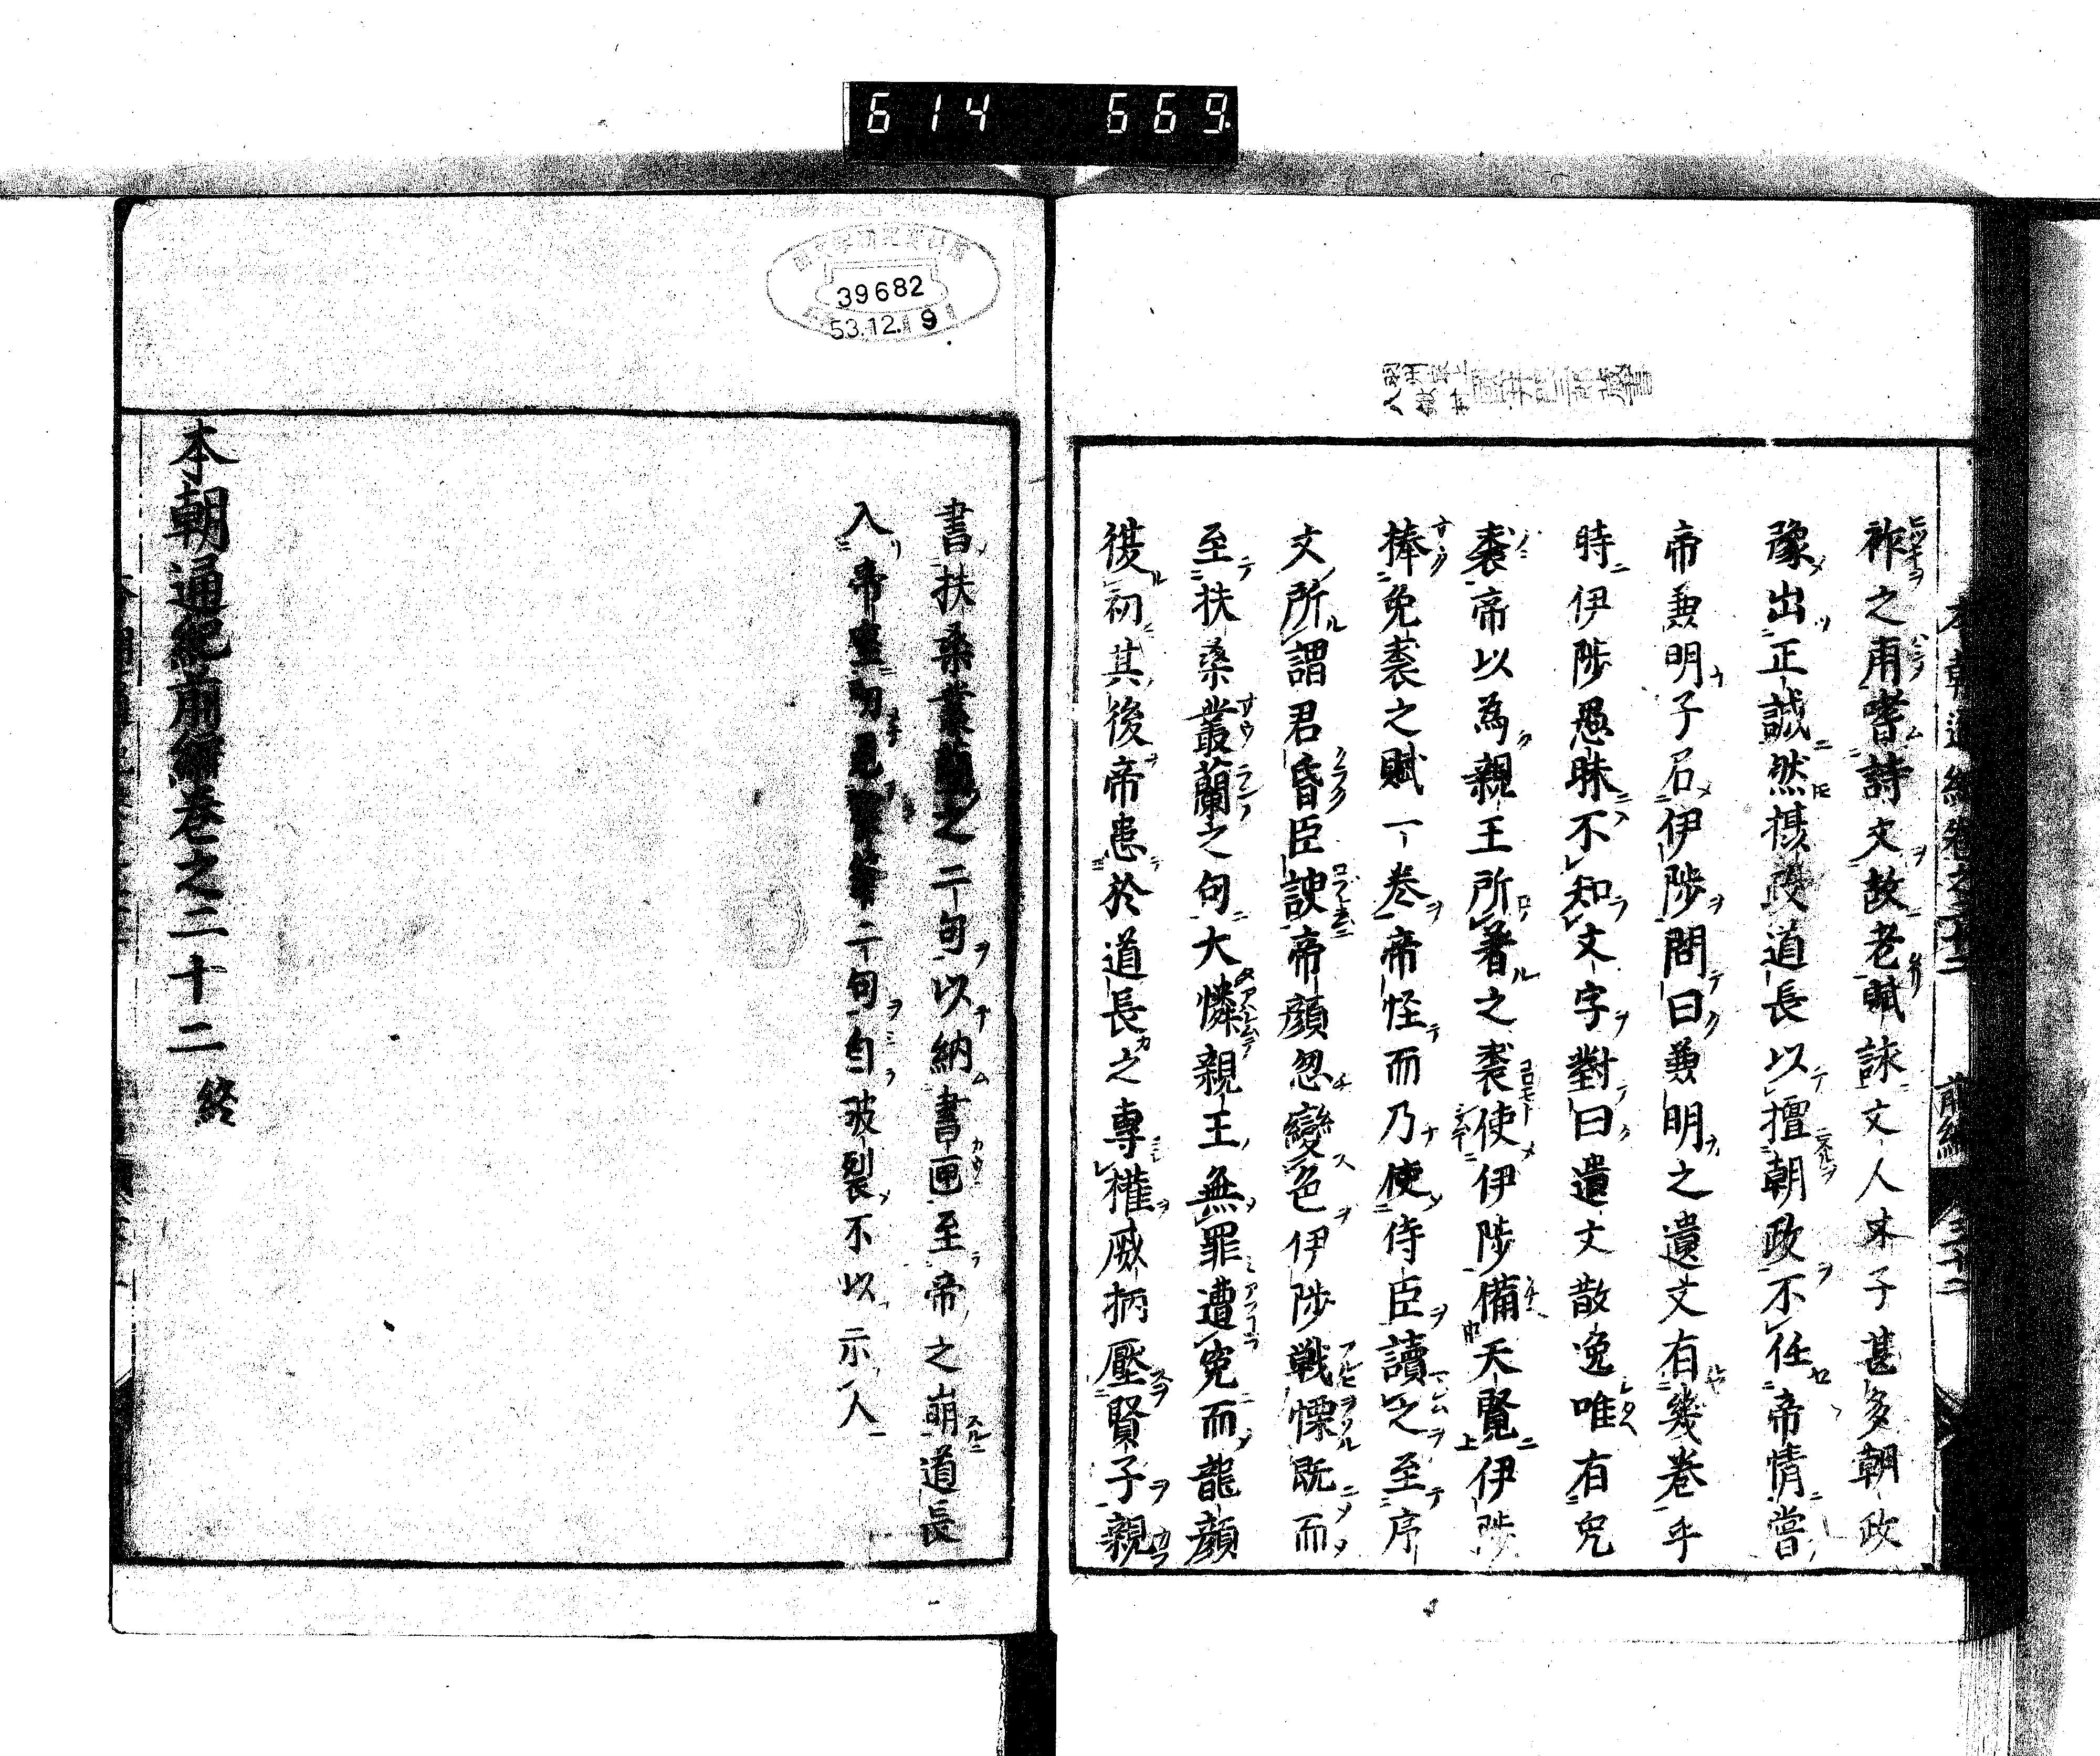 614 669
祚之甫嗜詩文故老賦詠文人才子甚多朝政
豫出正誠然道長以擅朝政不任帝情嘗
帝兼明子召伊陟問曰兼明之遺文有幾卷乎
時伊陟愚昧不知文字對曰遺文散逸唯有兔
裘帝以為親王所著之裘使伊陟備天覽伊陟
捧兔裘之賦一卷帝怪而乃使侍臣讀之至序
文所謂君昏臣諛帝顏忽變色伊陟戰慄既而
至扶桑叢蘭之句大憐親王無罪遭冤而龍顏
復初其後帝患於道長之專權威柄壓賢子親
39682
53.12.9
書扶桑叢蘭之二句以納書匣至帝之崩道長
入帝室見二句自破裂不以示人
本朝通紀前編卷之二十二終